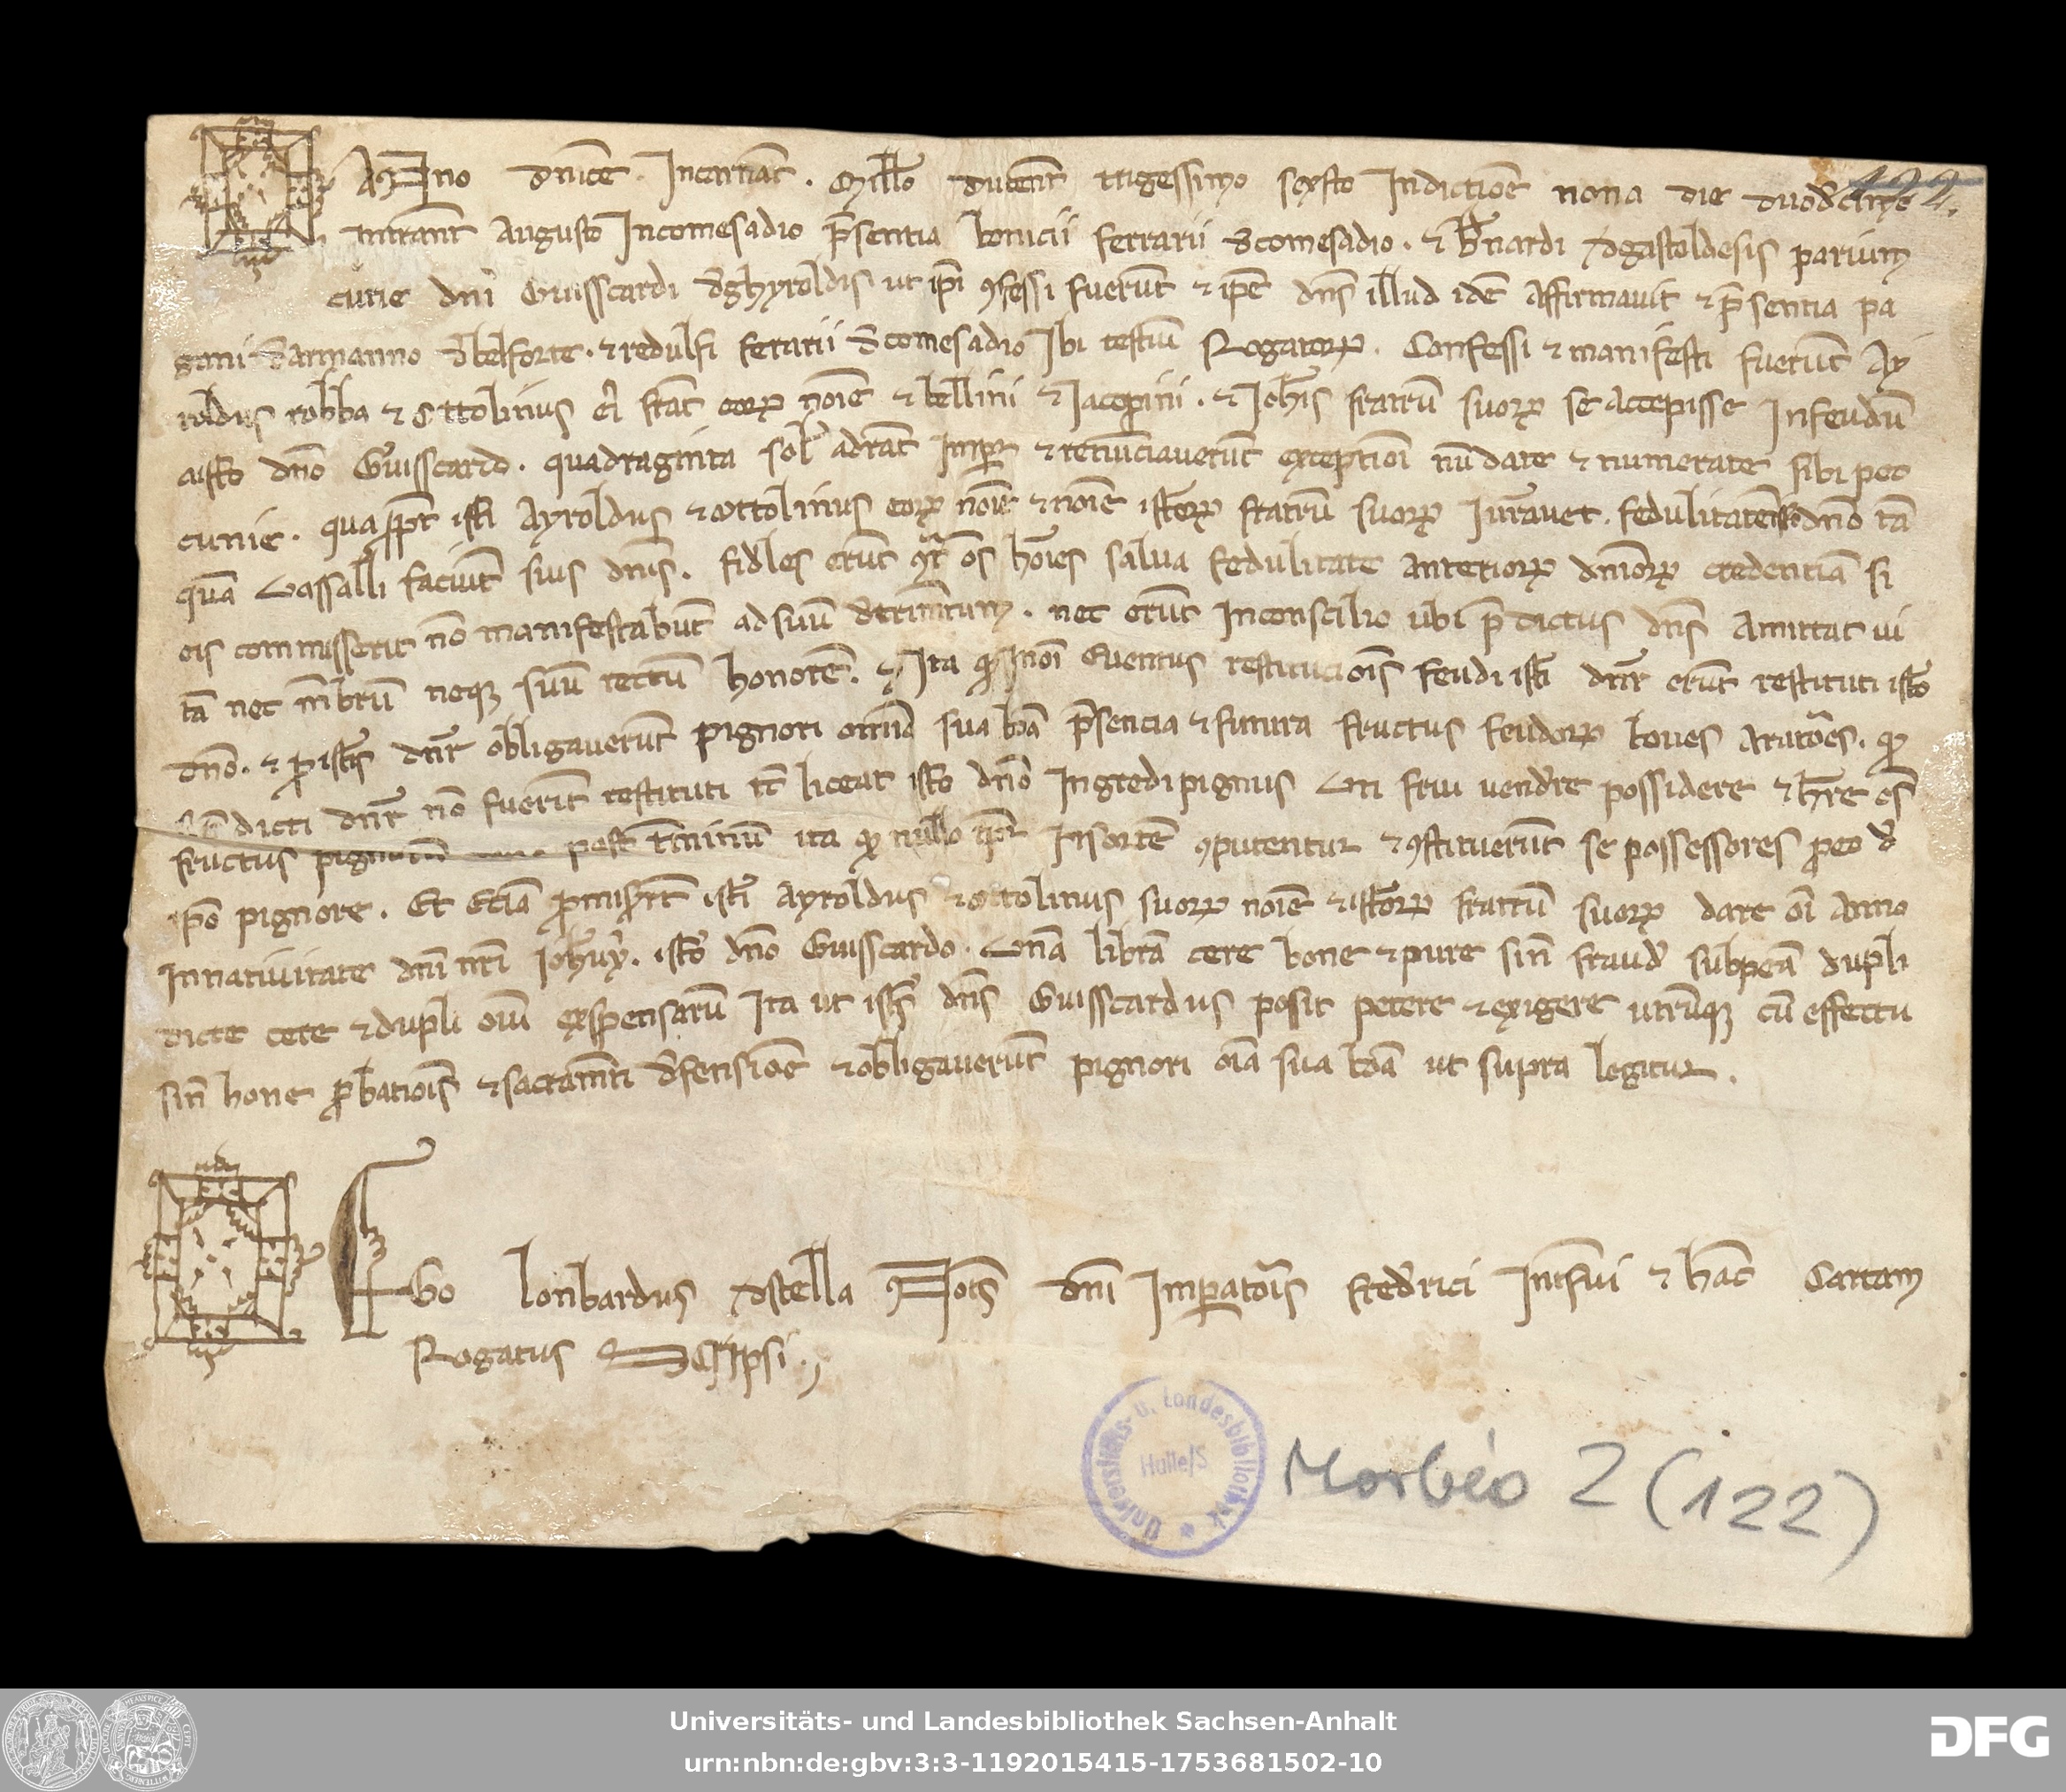 Anno dnice Incarnat. Millo ducent trigessimo sexto Indictioe nona die duodecimo
122.
intrant augusto Incomesadio psentia bonicii ferrarii dcomesadio. et bnardi degastoldesis parium
curie dni Guisscardi dghyroldis ut ipi 9fessi fuerut et ipe dns illud ide affirmauit et psentia pa
gani darmanno dbelforte. et redulfi ferarii dcomesadio Ibi testiu Rogatorꝝ. Confessi et manifesti fuerut Ay
roldus robba et Ottolinus ei frat eorꝝ noie et bellini et Jacopini. et Johis fratru suorꝝ se accepisse Infeudu
aisto dno Guisscardo. quadraginta sol adrat Impr et renuciauerut exceptioi nu date et numerate sibi pec
cunie. quappt isti Ayroldus et Ottolinus eorꝝ noie et noie istorꝝ fratru suorꝝ Iurauer. fedulitate isto dno ta
qua Vassalli faciut suis dnis. fidles erut 9tr os hoies salua fedulitate anteriorꝝ dniorꝝ credentia si
ois commisserit no manifestabut ad suu dtrimtum. nec erut Inconscilio ubi pdictus dns amittat ui
ta nec mbru neqꝫ suu rectu honore. et Ita qd Inoi euentus restitucois feudi isti dnr erut restituti isto
dno. et p istis dnr obligauerut pignori omnia sua boa psencia et futura fructus feudorꝝ boues aratores. qd
dicti dnr no fuerit restituti tc liceat isto dno Ingredi pignus Uti frui uendre possidere et hre os
fructus post tminu ita qd nullo tpr Insorte 9putentur et 9stituerut se possessores peo d
ipo pignore. Et Etia pmisrt isti Ayroldus et Ottolinus suorꝝ noie et istorꝝ fratru suorꝝ dare oi Anno
Innatiuitate dni nri isto dno Guisscardo. Una libra cere bone et pure sin fraud subpea dupli
dicte cere et dupli oiu expensaru Ita ut ists dns Guisscardus posit petere et exigere utruqꝫ cu effectu
sin hone pbatiois et sacramti dfensioe et obligauerut pignori oia sua boa ut supra legitur.
Ego lonbardus destella Nots dni Impatoris fredrici Intfui et hac Cartam
Rogatus Scripsi.
Universitäts- u. Landesbibliothek
Halle/S
Morbio 2 (122)
Universitäts- und Landesbibliothek Sachsen-Anhalt
urn:nbn:de:gbv:3:3-1192015415-1753681502-10
DFG